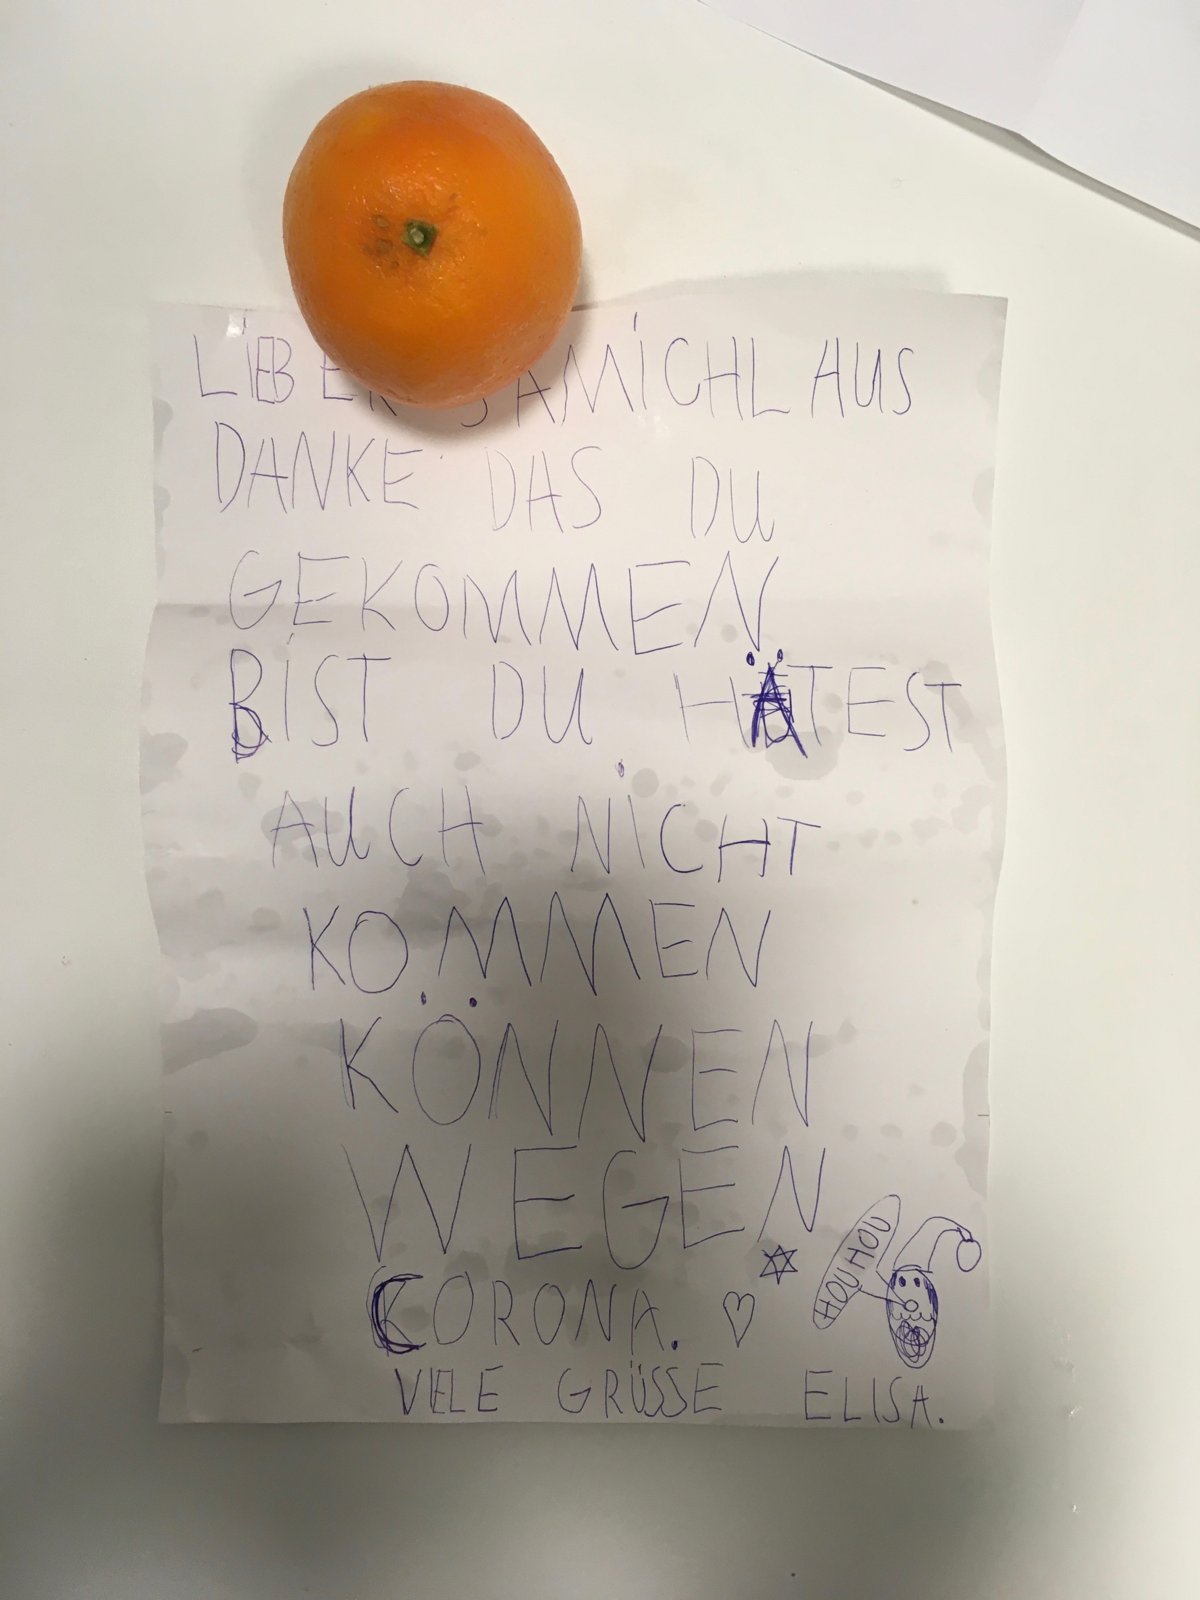 LIEBER SAMICHLAUS
DANKE DAS DU
GEKOMMEN
BIST DU HÄTEST
AUCH NICHT
KOMMEN
KÖNNEN
WEGEN
CORONA.
HOUHOU
VIELE GRÜSSE ELISA.